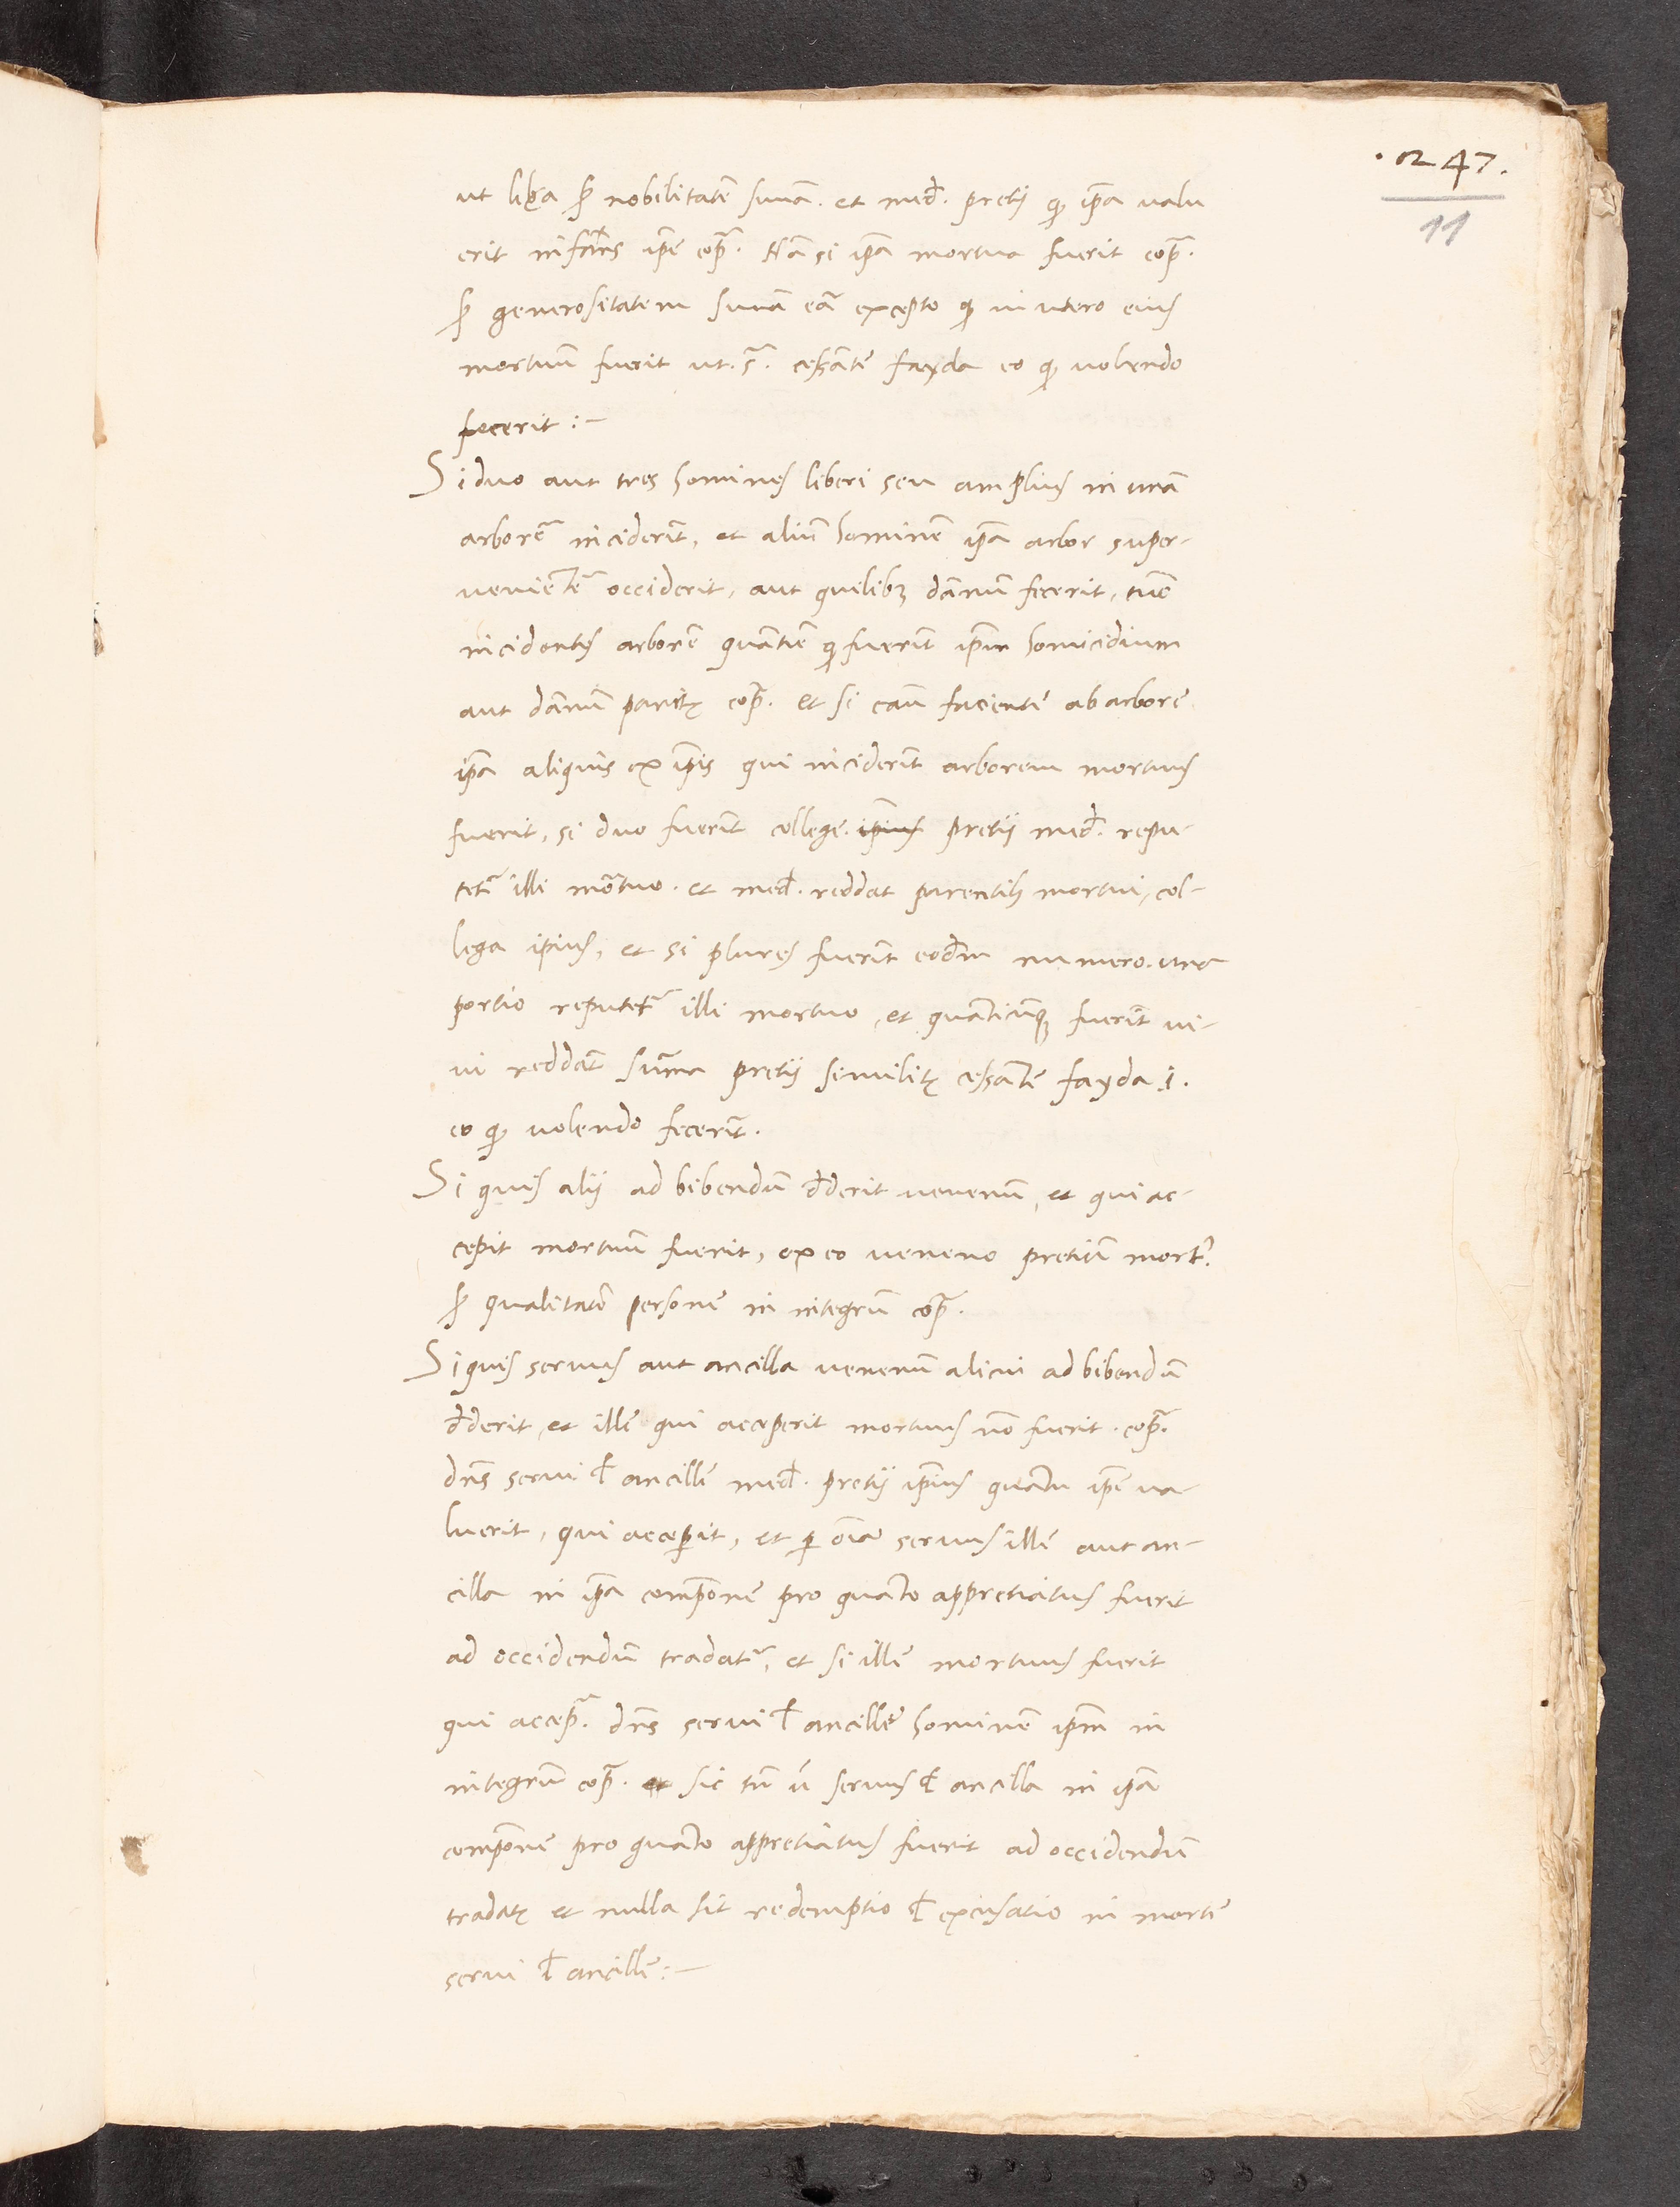 . 247.
11
ut libera ꝑ nobilitatē suuā. et med̄. pretij q̄ ip̄a valu
erit infans ip̄e cōp̄. Nā si ip̄a mortua fuerit cōp̄.
ꝑ generositatem suuā eā excepto q̄ in utero eius
mortuū fuerit ut. s̄. cessāte fayda eo q̄ nolendo
fecerit :—
Si duo aut tres homines liberi seu amplius in unā
arborē inciderīt, et aliū hominē ip̄a arbor super-
venientē occiderit, aut quilibꝫ dānū fecerit, tūc
incidentes arborē quantiē q̄ fuerīt ip̄m homicidium
aut dānū paritꝫ cōp̄. et si casū faciente ab arbore
ip̄a aliquis ex ip̄is qui inciderīt arborem mortuus
fuerit, si duo fuerīt college. ip̄ius pretii med̄. repu-
tetꝰ illi mortuo. et med̄. reddat parentibꝫ mortui, col-
lega ip̄ius, et si plures fuerīt eod̄m numero. una
portio reputetꝰ illi mortuo, et quanticūqꝫ fuerīt vi-
vi reddāt sūma pretii similitꝫ cessāte fayda .i.
eo q̄ nolendo fecerīt.
Si quis alii ad bibendū dederit venenū, et qui ac-
cepit mortuū fuerit, ex eo veneno pretiū mort̄.
ꝑ qualitatē persone in integrū cōp̄.
Si quis servus aut ancilla venenū alicui ad bibendū
dederit, et ille qui acceperit mortuus nō fuerit. cōp̄.
dn̄s servi ł ancille med̄. pretii ip̄ius quātu ip̄e va-
luerit, qui acceꝑit, et ꝑ oīa servus ille aut an-
cilla in ip̄a comp̄one pro quāto appretiatus fuerit
ad occidendū tradatꝰ, et si ille mortuus fuerit
qui accep̄. dn̄s servi ł ancille hominē ip̄m in
integrū cōp̄. et sic tn̄ ū servus ł ancilla in ip̄a
comp̄one pro quāto appretiatus fuerit ad occidendū
tradatꝫ et nulla sit redemptio ł excusatio in morte
servi ł ancille :—